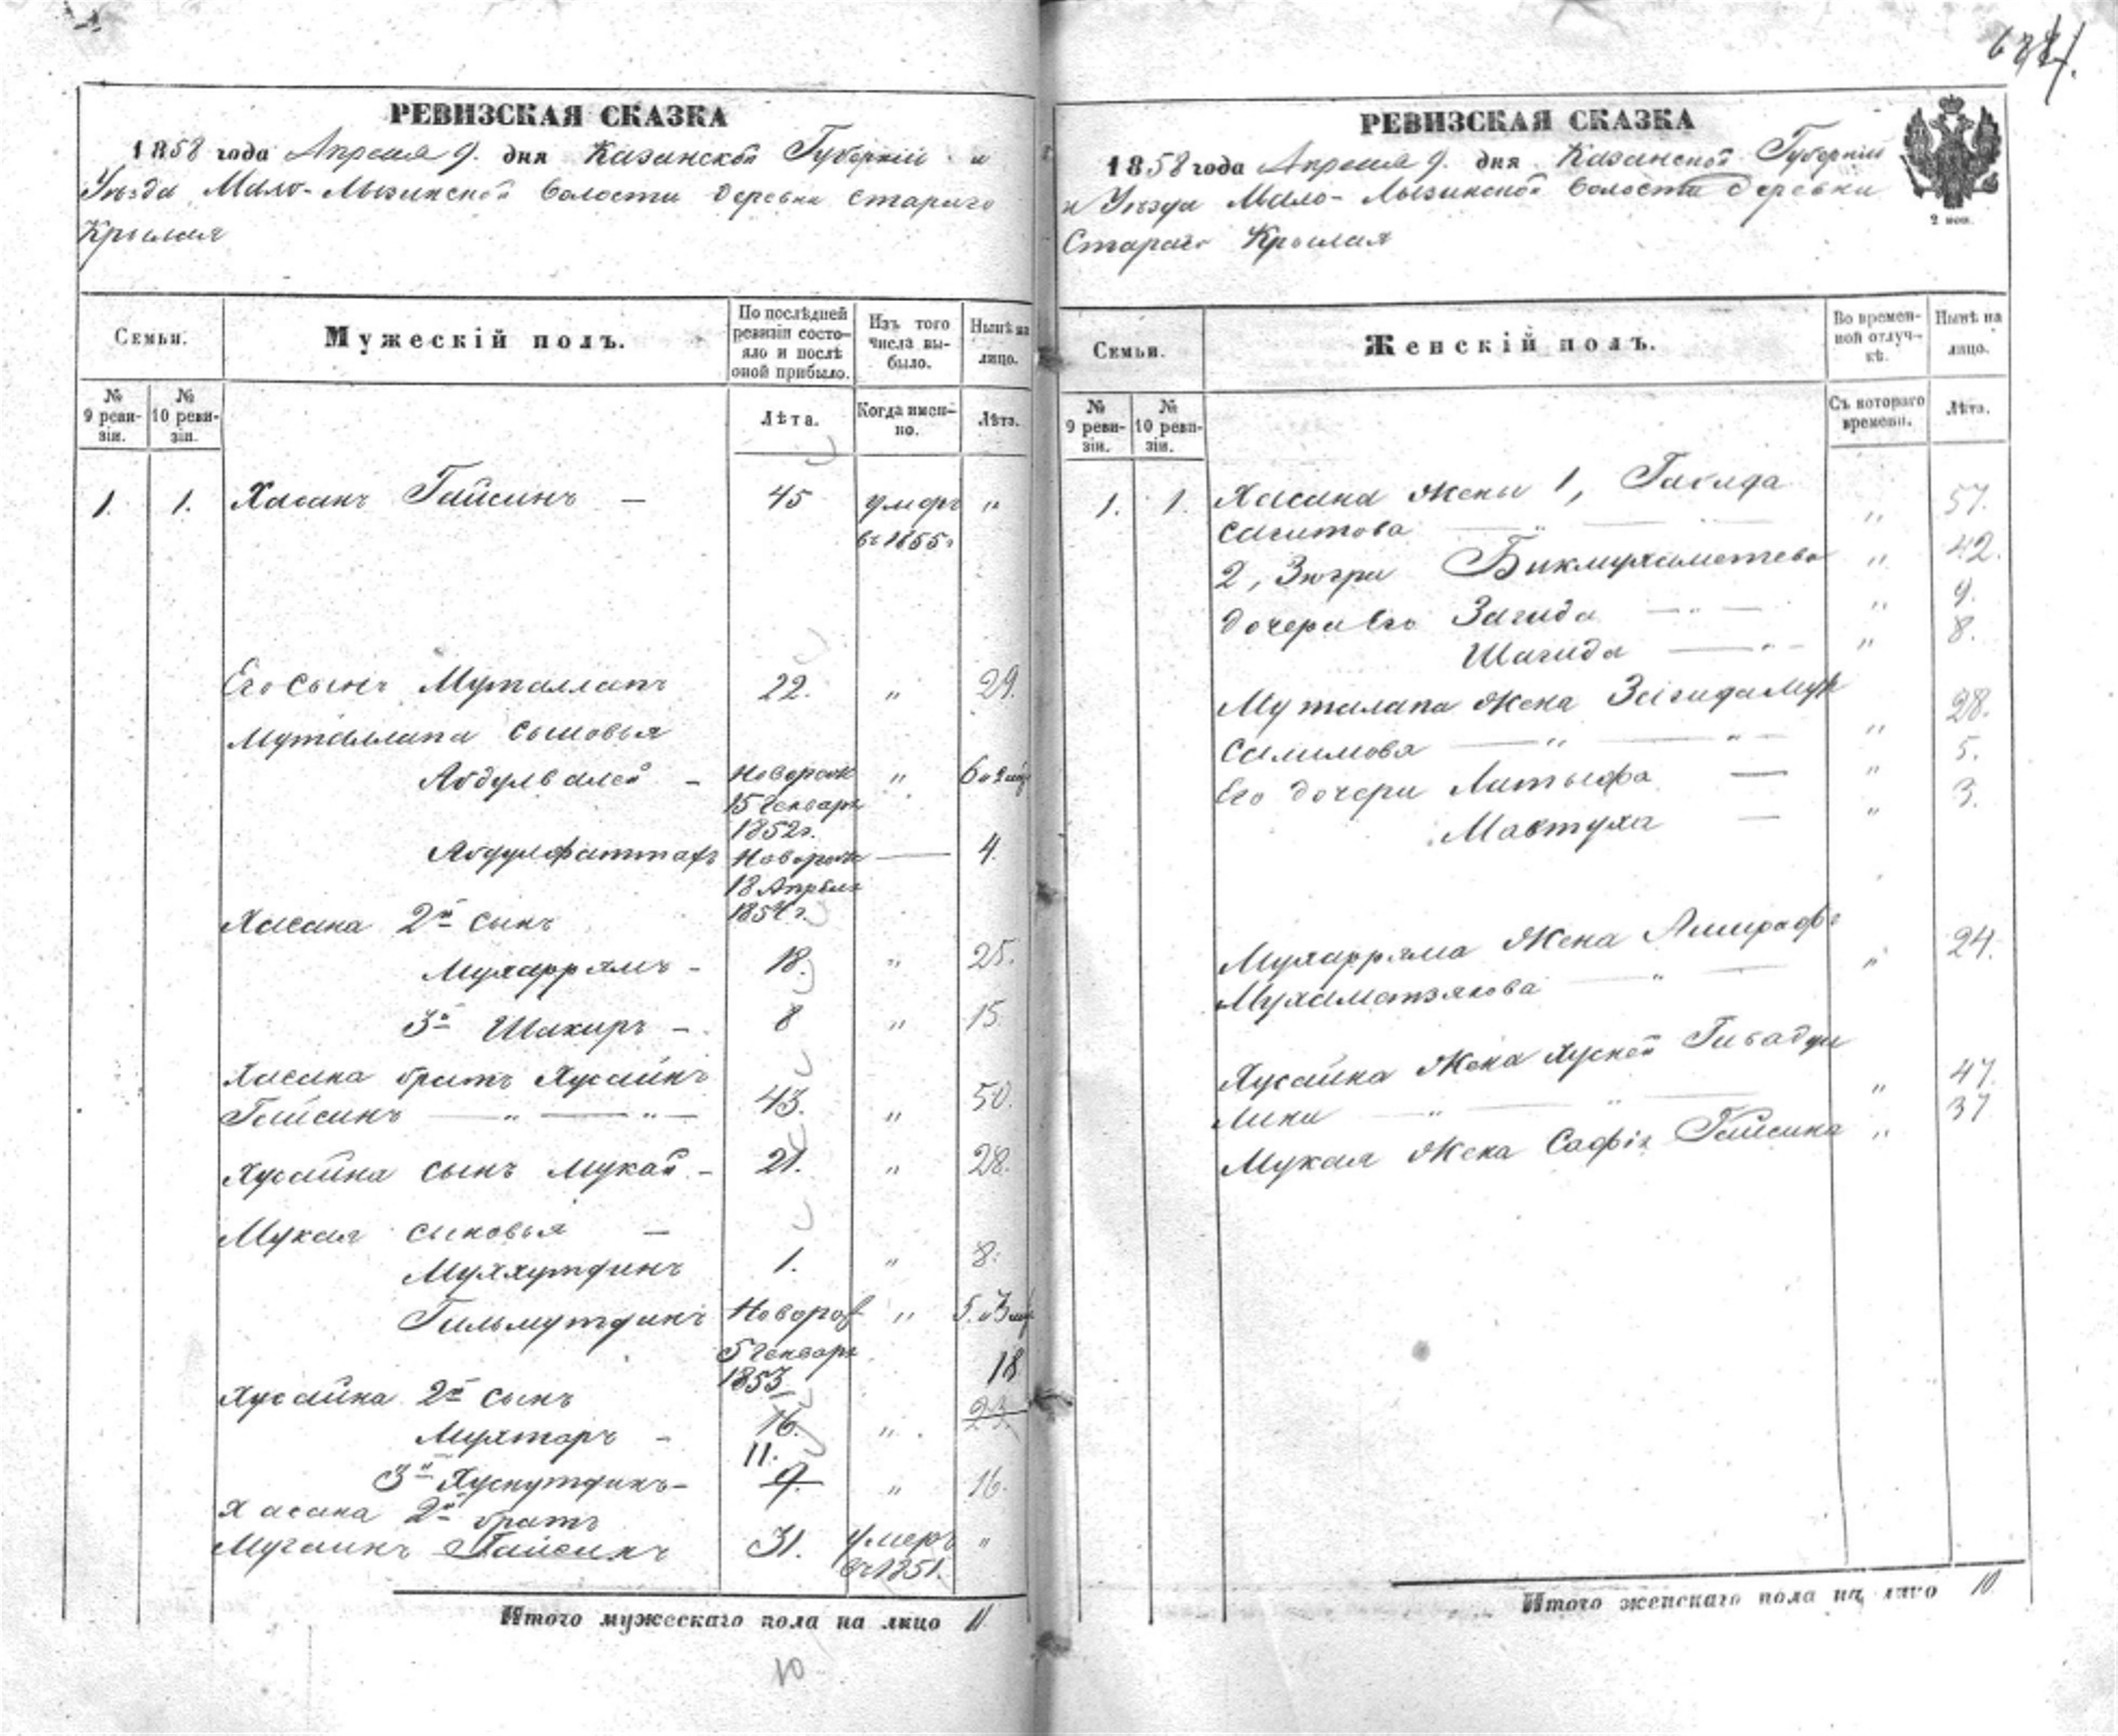 РЕВИЗСКАЯ СКАЗКА
1858 года Апреля 9. дня Казанской Губерніи и
Уѣзда Мало-Лызинской волости деревни Стараго
Крылая
Семьи.
Мужескій полъ.
По послѣдней ревизіи состояло и послѣ оной прибыло.
Изъ того числа выбыло.
Нынѣ на лицо.
№ 9 ревизіи.
№ 10 ревизіи.
Лѣта.
Когда именно.
Лѣта.
1. 1. Хасанъ Гайсинъ — 45 умеръ "
въ 1855 г
Его сынъ Муталлапъ 22. " 29.
Муталлапа сыновья
Абдулвалей — Новорож " 6 и 2 мѣ
15 Генваря
1852 г.
Абдулфаттахъ Новорож — 4.
18 Апрѣля
1854 г.
Хасана 2й сынъ
Мухаррямъ - 18. " 25.
3й Шакиръ - 8 " 15
Хасана братъ Хусаинъ
Гайсинъ — " — " — 43. " 50.
Хусаина сынъ Мукай - 21. " 28.
Мукая сыновья —
Мухлутдинъ 1. " 8.
Гильмутдинъ Новорож " 5. и 3 мѣ
5 Генваря
1853
18
Хусаина 2й сынъ
Мухтаръ - 16. " 23.
11.
3й Хуснутдинъ - 9. " 16.
Хасана 2й братъ
Мугаинъ Гайсинъ 31. умеръ "
въ 1851.
Итого мужескаго пола на лицо 11
10
РЕВИЗСКАЯ СКАЗКА
1858 года Апреля 9. дня Казанской Губерніи
и Уѣзда Мало-Лызинской волости деревни
Стараго Крылая
2 коп.
Семьи.
Женскій полъ.
Во временной отлучкѣ.
Нынѣ на лицо.
№ 9 ревизіи.
№ 10 ревизіи.
Съ котораго времени.
Лѣта.
1. 1. Хасана жены 1, Габида
Сагитова — " — " 57.
2, Зюгри Бикмухаметева " 42.
Дочери его Загида — " — " 9.
Шагида — " - " 8.
Муталапа жена Загида Мух
Салимова — " — " - " 28.
Его дочери Латыфа — " 5.
Мавтуха — " 3.
Мухарряма жена Ашрафъ
Мухаметзянова — " — " 24.
Хусаина жена Хусней Гибадул
лина — " — " — " 47.
Мукая жена Сафія Гайсина " 37
Итого женскаго пола на лицо 10